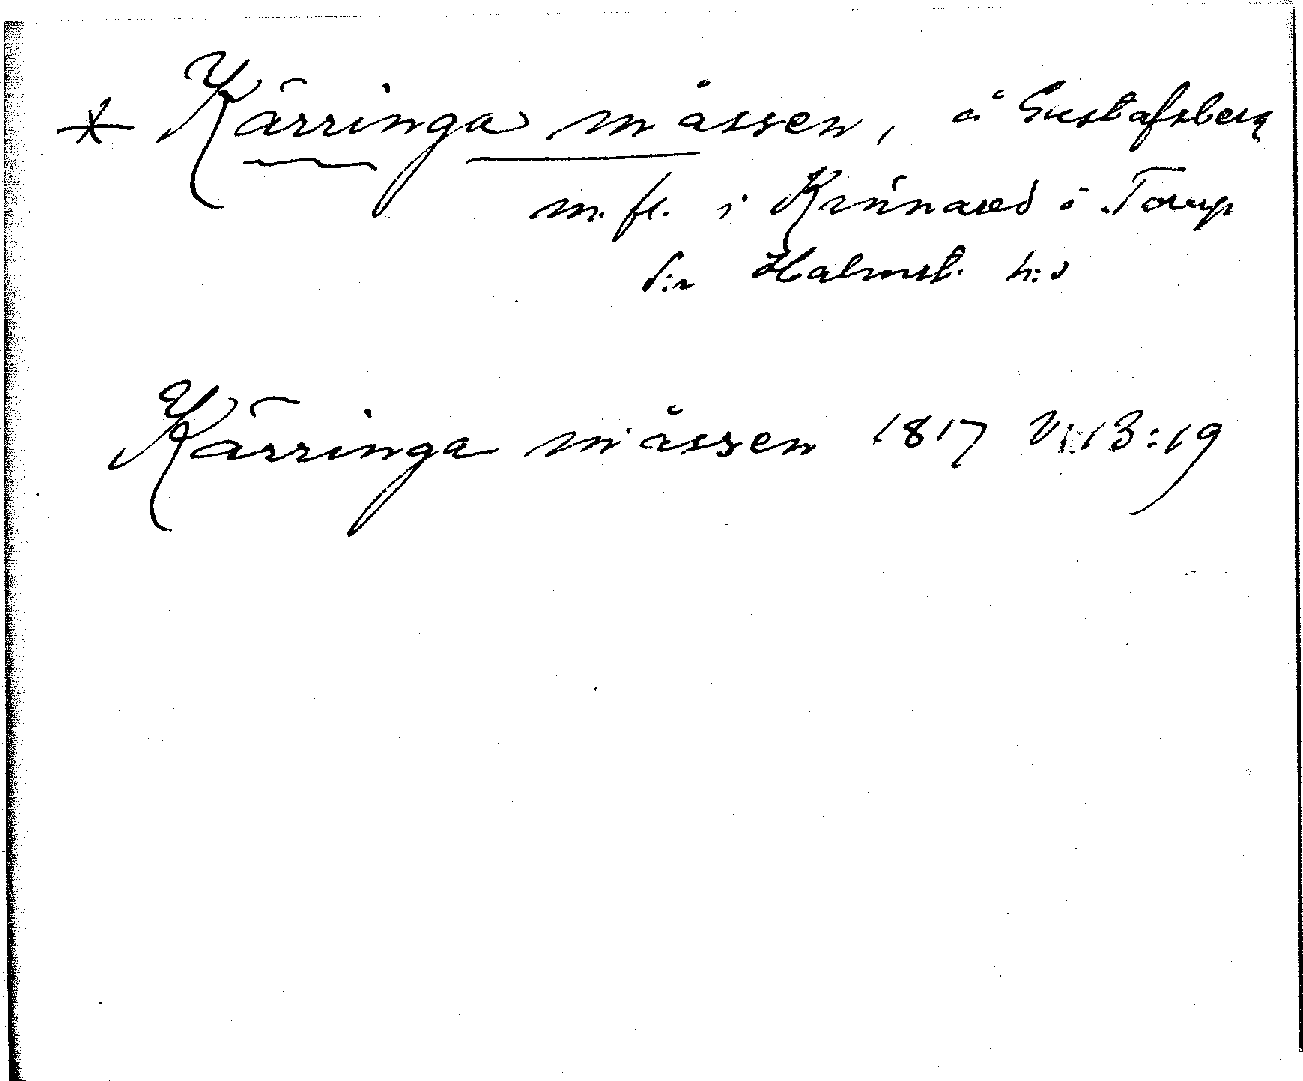 * Kärringa måssen, å Gustafsberg
m. fl. i Kinnared i Torup
s:n Halmst. h:d
Kärringa måssen 1817 VI 13:19